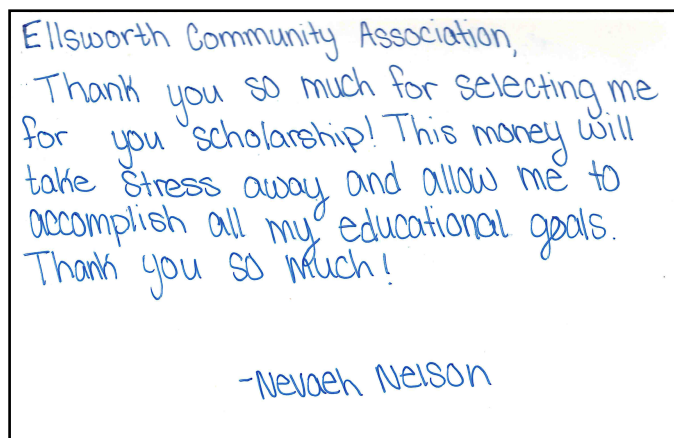 Ellsworth Community Association,
Thank you so much for selecting me
for you scholarship! This money will
take stress away and allow me to
accomplish all my educational goals.
Thank you so much!
-Nevaeh Nelson